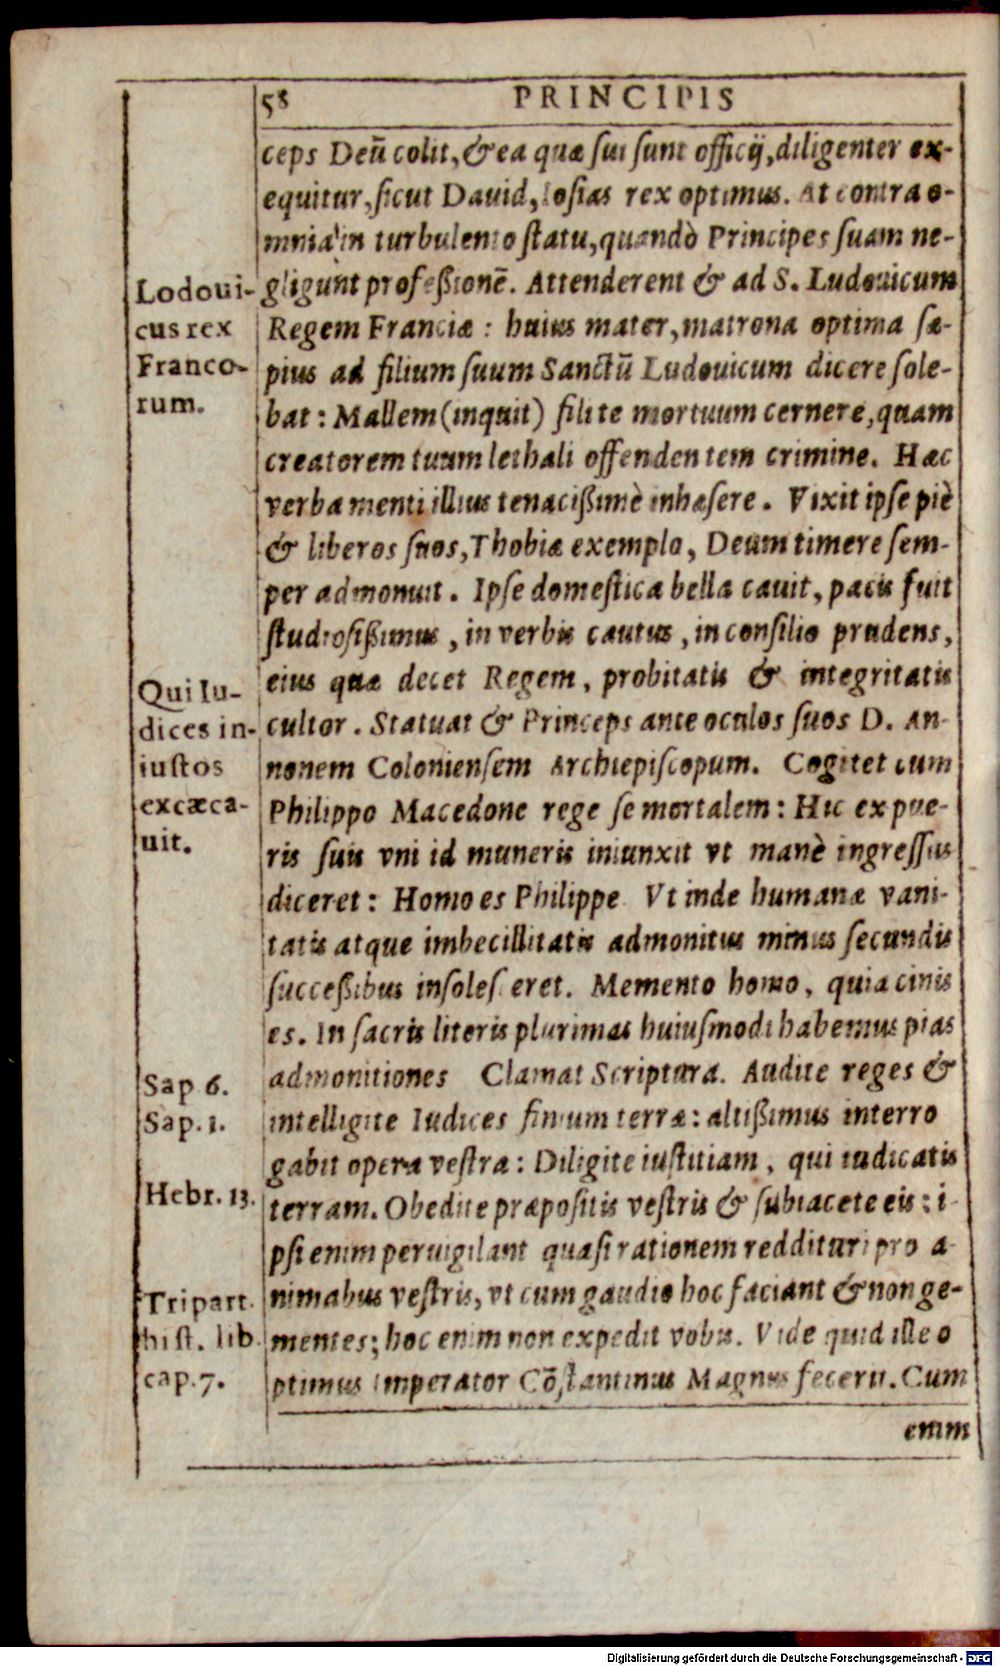 58 PRINCIPIS
ceps Deū colit, & ea quæ sui sunt officij, diligenter ex-
equitur, sicut David, Iosias rex optimus. At contra o-
mnia in turbulento statu, quandò Principes suam ne-
gligunt professionē. Attenderent & ad S. Ludouicum
Regem Franciæ: huius mater, matrona optima sæ-
pius ad filium suum Sanctū Ludouicum dicere sole-
bat: Mallem (inquit) fili te mortuum cernere, quam
creatorem tuum lethali offendentem crimine. Hæc
verba menti illius tenacissimè inhæsere. Vixit ipse piè
& liberos suos, Thobiæ exemplo, Deum timere sem-
per admonuit. Ipse domestica bella cavit, pacis fuit
studiosissimus, in verbis cautus, in consilio prudens,
eius quæ decet Regem, probitatis & integritatis
cultor. Statuat & Princeps ante oculos suos D. An-
nonem Coloniensem Archiepiscopum. Cogitet cum
Philippo Macedone rege se mortalem: Hic ex pue-
ris suis vni id muneris iniunxit vt manè ingressus
diceret: Homo es Philippe Vt inde humanæ vani-
tatis atque imbecillitatis admonitus minus secundis
successibus insolesceret. Memento homo, quia cinis
es. In sacris literis plurimas huiusmodi habemus pias
admonitiones Clamat Scriptura. Audite reges &
intelligite Iudices finium terræ: altissimus interro
gabit opera vestra: Diligite iustitiam, qui iudicatis
terram. Obedite præpositis vestris & subiacete eis: i-
psi enim peruigilant quasi rationem reddituri pro a-
nimabus vestris, vt cum gaudio hoc faciant & non ge-
mentes; hoc enim non expedit vobis. Vide quid ille o
ptimus imperator Cōstantinus Magnus fecerit. Cum
enim
Lodoui-
cus rex
Franco-
rum.
Qui Iu-
dices in-
iustos
excæca-
uit.
Sap 6.
Sap. 1.
Hebr. 13.
Tripart.
hist. lib.
cap. 7.
Digitalisierung gefördert durch die Deutsche Forschungsgemeinschaft - DFG